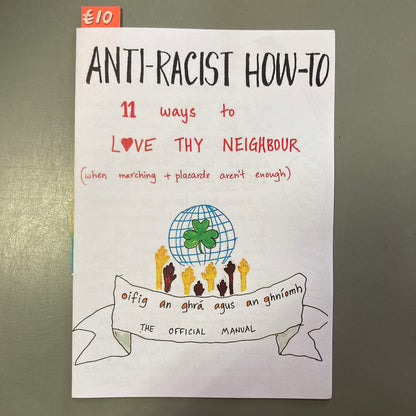 €10
ANTI-RACIST HOW-TO
11 ways to
L♥VE THY NEIGHBOUR
(when marching + placards aren't enough)
oifig an ghrá agus an ghníomh
THE OFFICIAL MANUAL